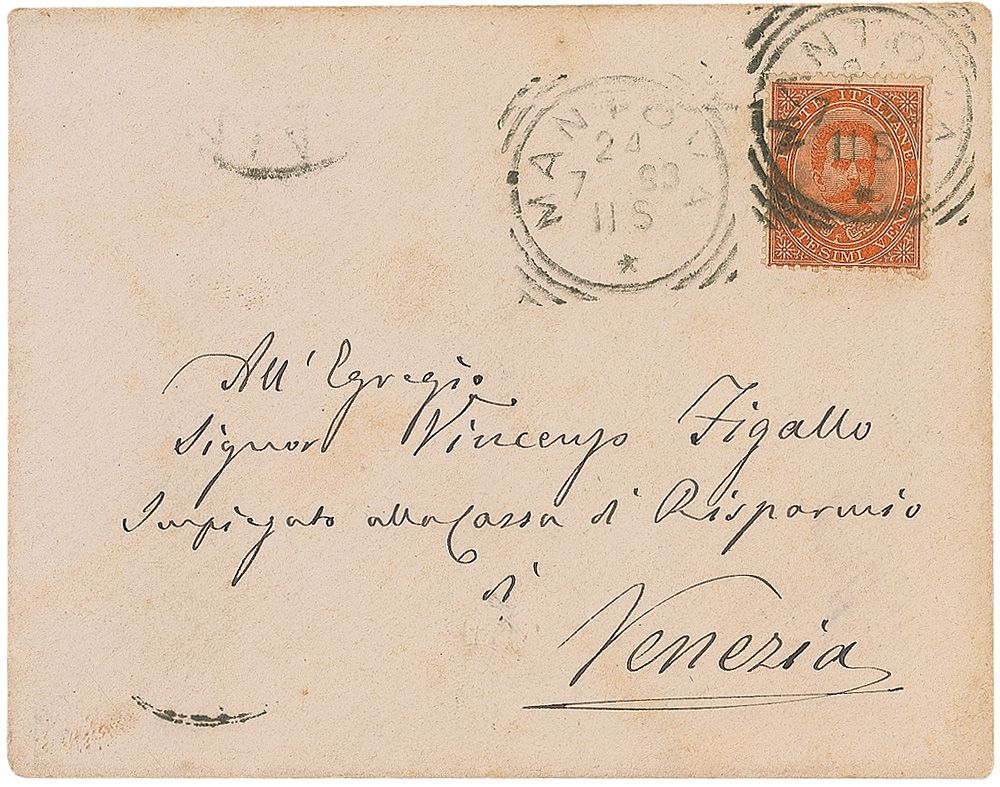 MANTOVA
24
7 89
11 S
*
MANTOVA
11 S
*
POSTE ITALIANE
CENTESIMI VENTI
All' Egregio
Signor Vincenzo Figallo
Impiegato alla Cassa di Risparmio
di
Venezia